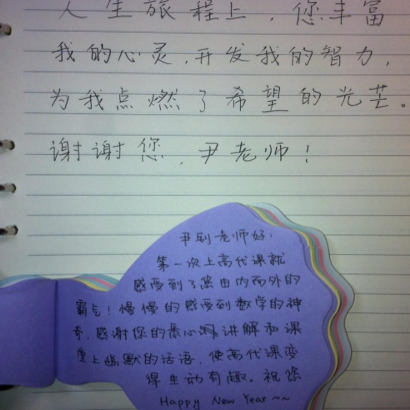 人生旅程上，您丰富
我的心灵，开发我的智力，
为我点燃了希望的光芒。
谢谢您，尹老师！
尹剑老师好：
第一次上高代课就
感受到了您由内而外的
霸气！慢慢的感受到数学的神
奇，感谢您的悉心讲解和课
堂上幽默的话语，使高代课变
得生动有趣。祝您
Happy New Year ~~